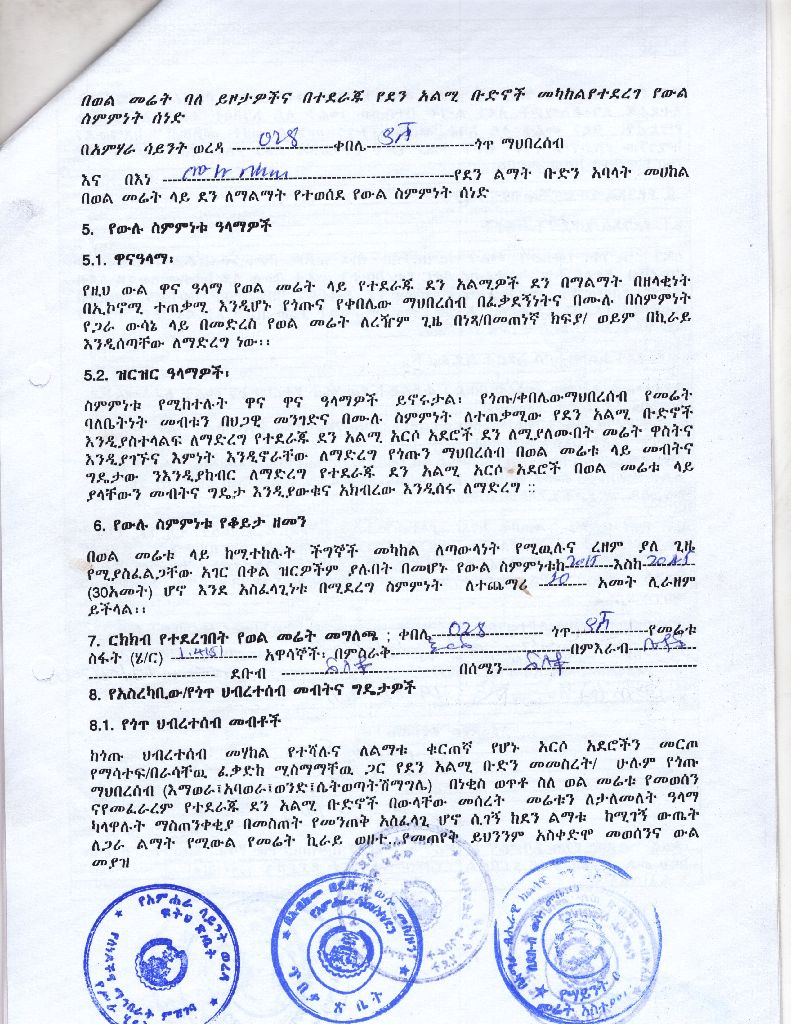 በወል መሬት ባለ ይዞታዎችና በተደራጁ የደን አልሚ ቡድኖች መካከልየተደረገ የውል
ስምምነት ሰነድ
በአምሃራ ሳይንት ወረዳ 028 ቀበሌ ጎጥ ማህበረሰብ
እና በእነ የደን ልማት ቡድን አባላት መሀከል
በወል መሬት ላይ ደን ለማልማት የተወሰደ የውል ስምምነት ሰነድ
5. የውሉ ስምምነቱ ዓላማዎች
5.1. ዋናዓላማ፡
የዚህ ውል ዋና ዓላማ የወል መሬት ላይ የተደራጁ ደን አልሚዎች ደን በማልማት በዘላቂነት
በኢኮኖሚ ተጠቃሚ እንዲሆኑ የጎጡና የቀበሌው ማህበረሰብ በፈቃደኝነትና በሙሉ በስምምነት
የጋራ ውሳኔ ላይ በመድረስ የወል መሬት ለረዥም ጊዜ በነጻ/በመጠነኛ ክፍያ/ ወይም በኪራይ
እንዲሰጣቸው ለማድረግ ነው፡፡
5.2. ዝርዝር ዓላማዎች፡
ስምምነቱ የሚከተሉት ዋና ዋና ዓላማዎች ይኖሩታል፡ የጎጡ/ቀበሌውማህበረሰብ የመሬት
ባለቤትነት መብቱን በህጋዊ መንግድና በሙሉ ስምምነት ለተጠቃሚው የደን አልሚ ቡድኖች
እንዲያስተላልፍ ለማድረግ የተደራጁ ደን አልሚ አርሶ አደሮች ደን ለሚያለሙበት መሬት ዋስትና
እንዲያገኙና እምነት እንዲኖራቸው ለማድረግ የጎጡን ማህበረሰብ በወል መሬቱ ላይ መብትና
ግዴታው ንእንዲያከብር ለማድረግ የተደራጁ ደን አልሚ አርሶ አደሮች በወል መሬቱ ላይ
ያላቸውን መብትና ግዴታ እንዲያውቁና አክብረው እንዲሰሩ ለማድረግ ::
6. የውሉ ስምምነቱ የቆይታ ዘመን
በወል መሬቱ ላይ ከሚተከሉት ችግኞች መካከል ለጣውላነት የሚዉሉና ረዘም ያለ ጊዜ
የሚያስፈልጋቸው አገር በቀል ዝርዎችም ያሉበት በመሆኑ የውል ስምምነቱከ 2015 እስከ 2045
(30አመት) ሆኖ እንደ አስፈላጊነቱ በሚደረግ ስምምነት ለተጨማሪ 20 አመት ሊራዘም
ይችላል፡፡
7. ርክክብ የተደረገበት የወል መሬት መግለጫ ; ቀበሌ 028 ጎጥ የመሬቱ
ስፋት (ሄ/ር) አዋሳኞች፡ በምስራቅ በምእራብ
ደቡብ በሰሜን
8. የአስረካቢው/የጎጥ ህብረተሰብ መብትና ግዴታዎች
8.1. የጎጥ ህብረተሰብ መብቶች
ከጎጡ ህብረተሰብ መሃከል የተሻሉና ለልማቱ ቁርጠኛ የሆኑ አርሶ አደሮችን መርጦ
የማሳተፍ/በራሳቸዉ ፈቃድከ ሚስማማቸዉ ጋር የደን አልሚ ቡድን መመስረት/ ሁሉም የጎጡ
ማህበረሰብ (እማወራ፣አባወራ፣ወንድ፣ሴትወጣትሽማግሌ) በነቂስ ወጥቶ ስለ ወል መሬቱ የመወሰን
ናየመፈራረም የተደራጁ ደን አልሚ ቡድኖች በውላቸው መሰረት መሬቱን ለታለመለት ዓላማ
ካላዋሉት ማስጠንቀቂያ በመስጠት የመንጠቅ አስፈላጊ ሆኖ ሲገኝ ከደን ልማቱ ከሚገኝ ውጤት
ለጋራ ልማት የሚውል የመሬት ኪራይ ወዘተ...የመጠየቅ ይህንንም አስቀድሞ መወሰንና ውል
መያዝ
የአምሐራ ሳይንት ወረዳ
ፍትህ ጽ/ቤት
ጥበቃ ጽ ቤት